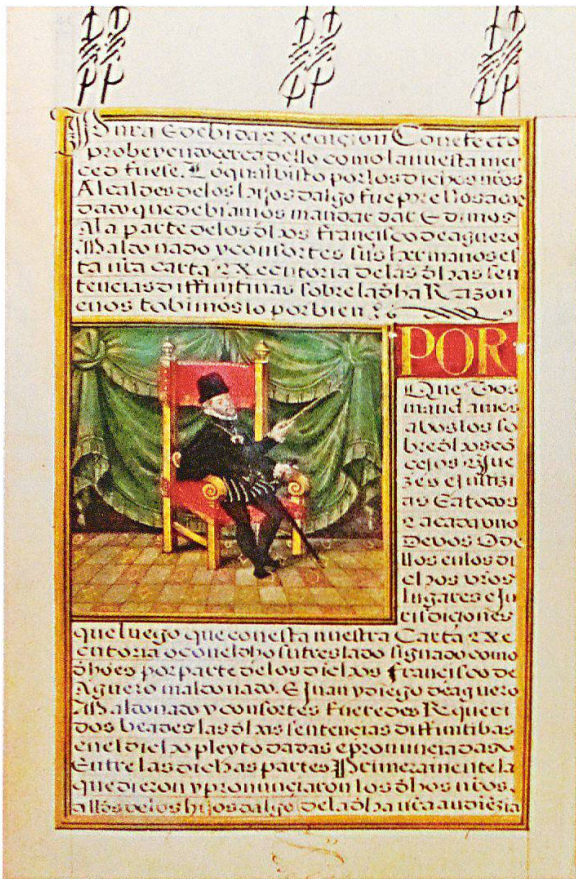 Pura E debida Exeçuçion Con efecto
probeyendo çerca dello como la nuestra mer
ced fuese. Lo qual bisto por los dichos nros
Alcaldes de los hijosdalgo fue por ellos acor
dado que debiamos mandar dar E dimos
A la parte de los dhos francisco de aguero
Maldonado y consortes sus hermanos es
ta nra carta Executoria de las dhas sen
tencias diffinitinas sobre la dha Razon
E nos tobimoslo por bien
POR
Que Vos
mandamos
a bos los so
bredhos cō
cejos E Jue
zes e justizi
as E a todos
E a cada uno
de vos E de
llos en los di
chos vros
lugares e Ju
risdiçiones
que luego que con esta nuestra Carta Exe
cutoria o con el dho su treslado signado como
dho es por parte de los dichos francisco de
Aguero maldonado. E Juan y diego de aguero
Maldonado y consortes fueredes Requeri
dos beades las dhas sentencias diffinitibas
en el dicho pleyto dadas e pronunciadas
Entre las dichas partes Primeramente la
que dieron y pronunciaron los dhos nros.
de los hijosdalgo de la dha nra audiēzia